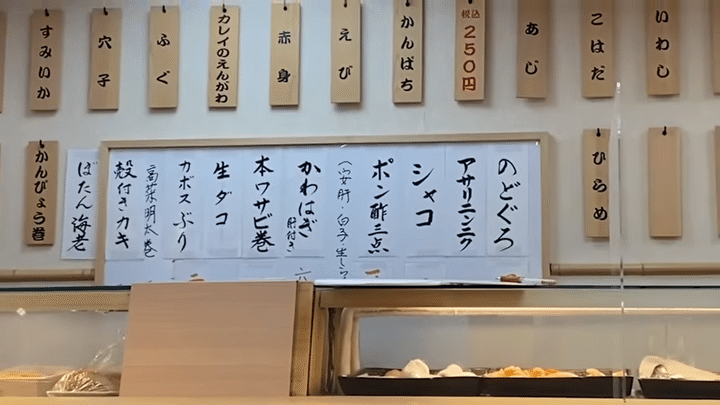 いわし
こはだ
あじ
税込
250円
かんぱち
えび
赤身
カレイのえんがわ
ふぐ
穴子
すみいか
ひらめ
のどぐろ
アサリニンニク
シャコ
ポン酢三点
(安肝・白子 生しらす
かわはぎ
肝付き
本ワサビ巻
生ダコ
カボスぶり
高菜明太巻
殻付きカキ
ぼたん海老
かんぴょう巻